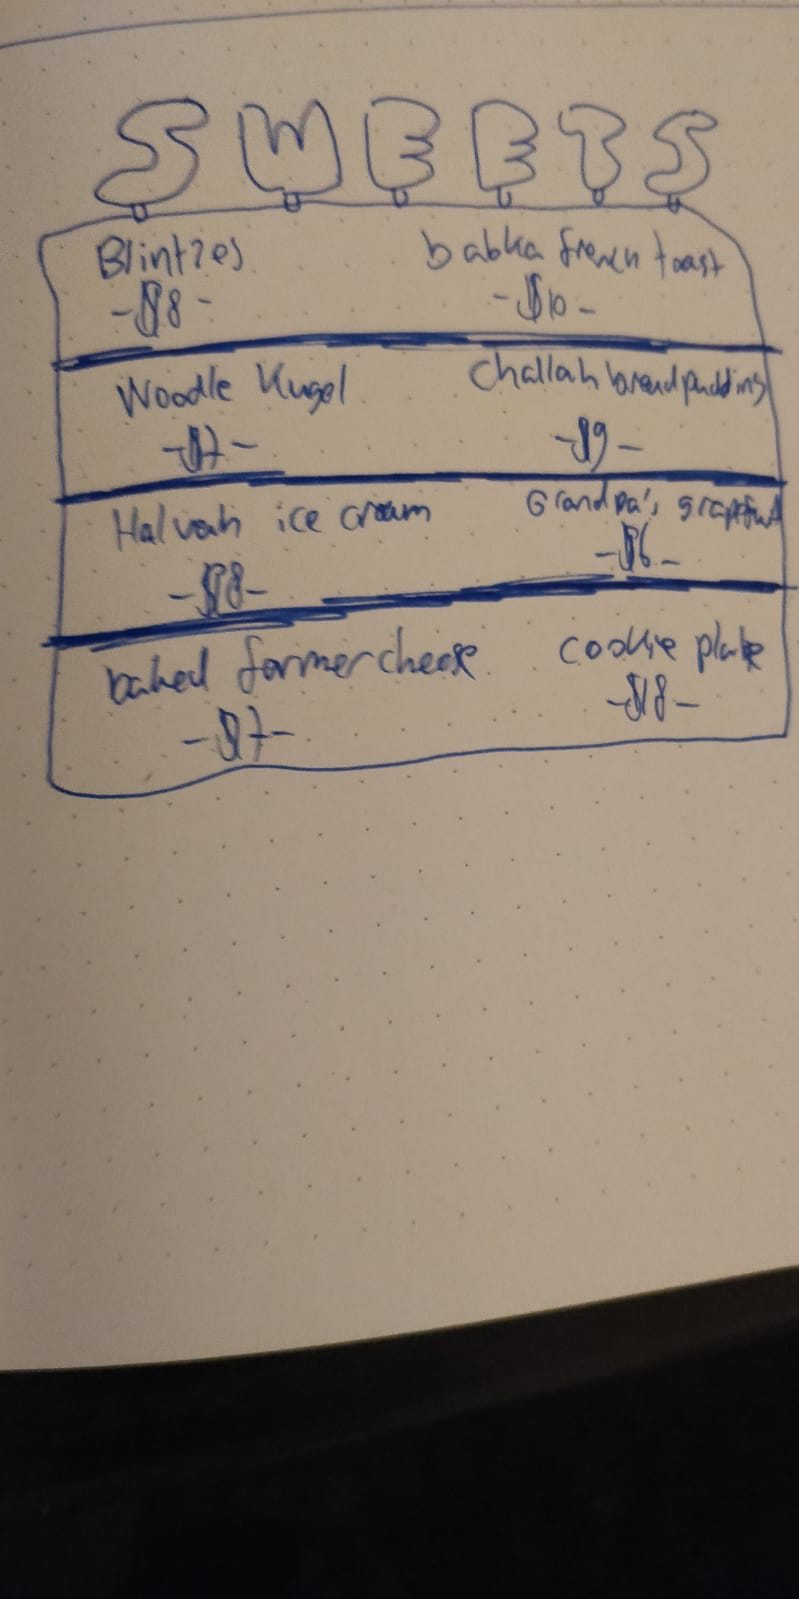 SWEETS
Blintzes babka french toast
-$8- -$10-
Noodle Kugel Challah bread pudding
-$7- -$9-
Halvah ice cream Grandpa's grapefruit
-$8- -$6-
baked farmer cheese cookie plate
-$7- -$18-